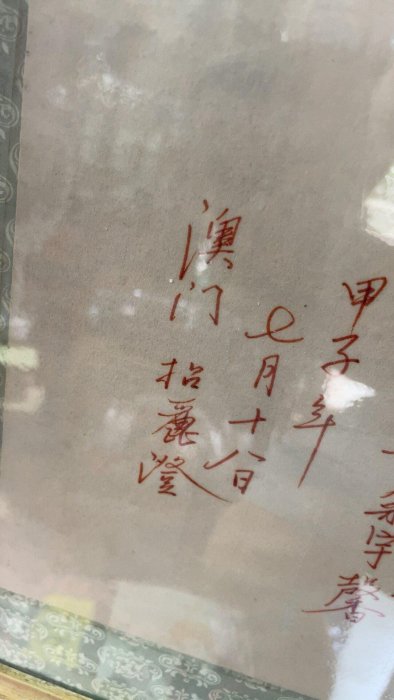 宇馨
甲子年
七月十八日
澳门
招麗澄